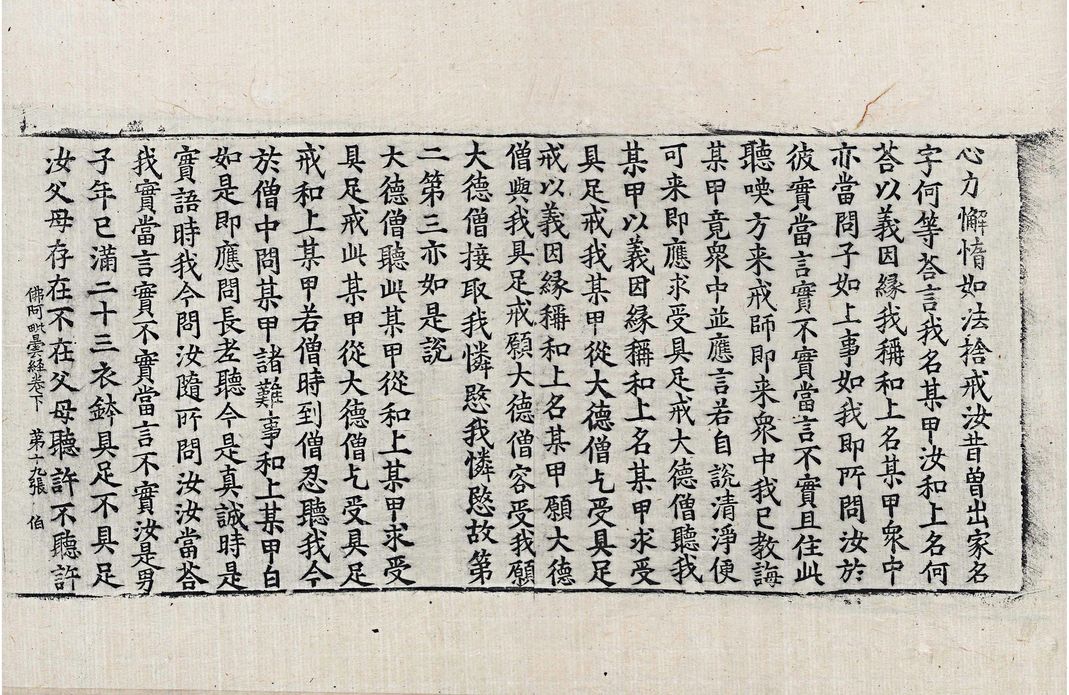 心力懈惰如法捨戒汝昔曽出家名
字何等荅言我名某甲汝和上名何
荅以義因縁我稱和上名某甲衆中
亦當問子如上事如我即所問汝於
彼實當言實不實當言不實且住此
聽喚方来戒師即来衆中我已教誨
某甲竟衆中並應言若自說清淨便
可来即應求受具足戒大德僧聽我
某甲以義因縁稱和上名某甲求受
具足戒我某甲從大德僧乞受具足
戒以義因縁稱和上名某甲願大德
僧與我具足戒願大德僧容受我願
大德僧接取我憐愍我憐愍故第
二第三亦如是說
大德僧聽此某甲從和上某甲求受
具足戒此某甲從大德僧乞受具足
戒和上某甲若僧時到僧忍聽我今
於僧中問某甲諸難事和上某甲白
如是即應問長老聽今是真誠時是
實語時我今問汝隨所問汝汝當荅
我實當言實不實當言不實汝是男
子年已滿二十三衣鉢具足不具足
汝父母存在不在父母聽許不聽許
佛阿毗曇経卷下 第十九張 伯